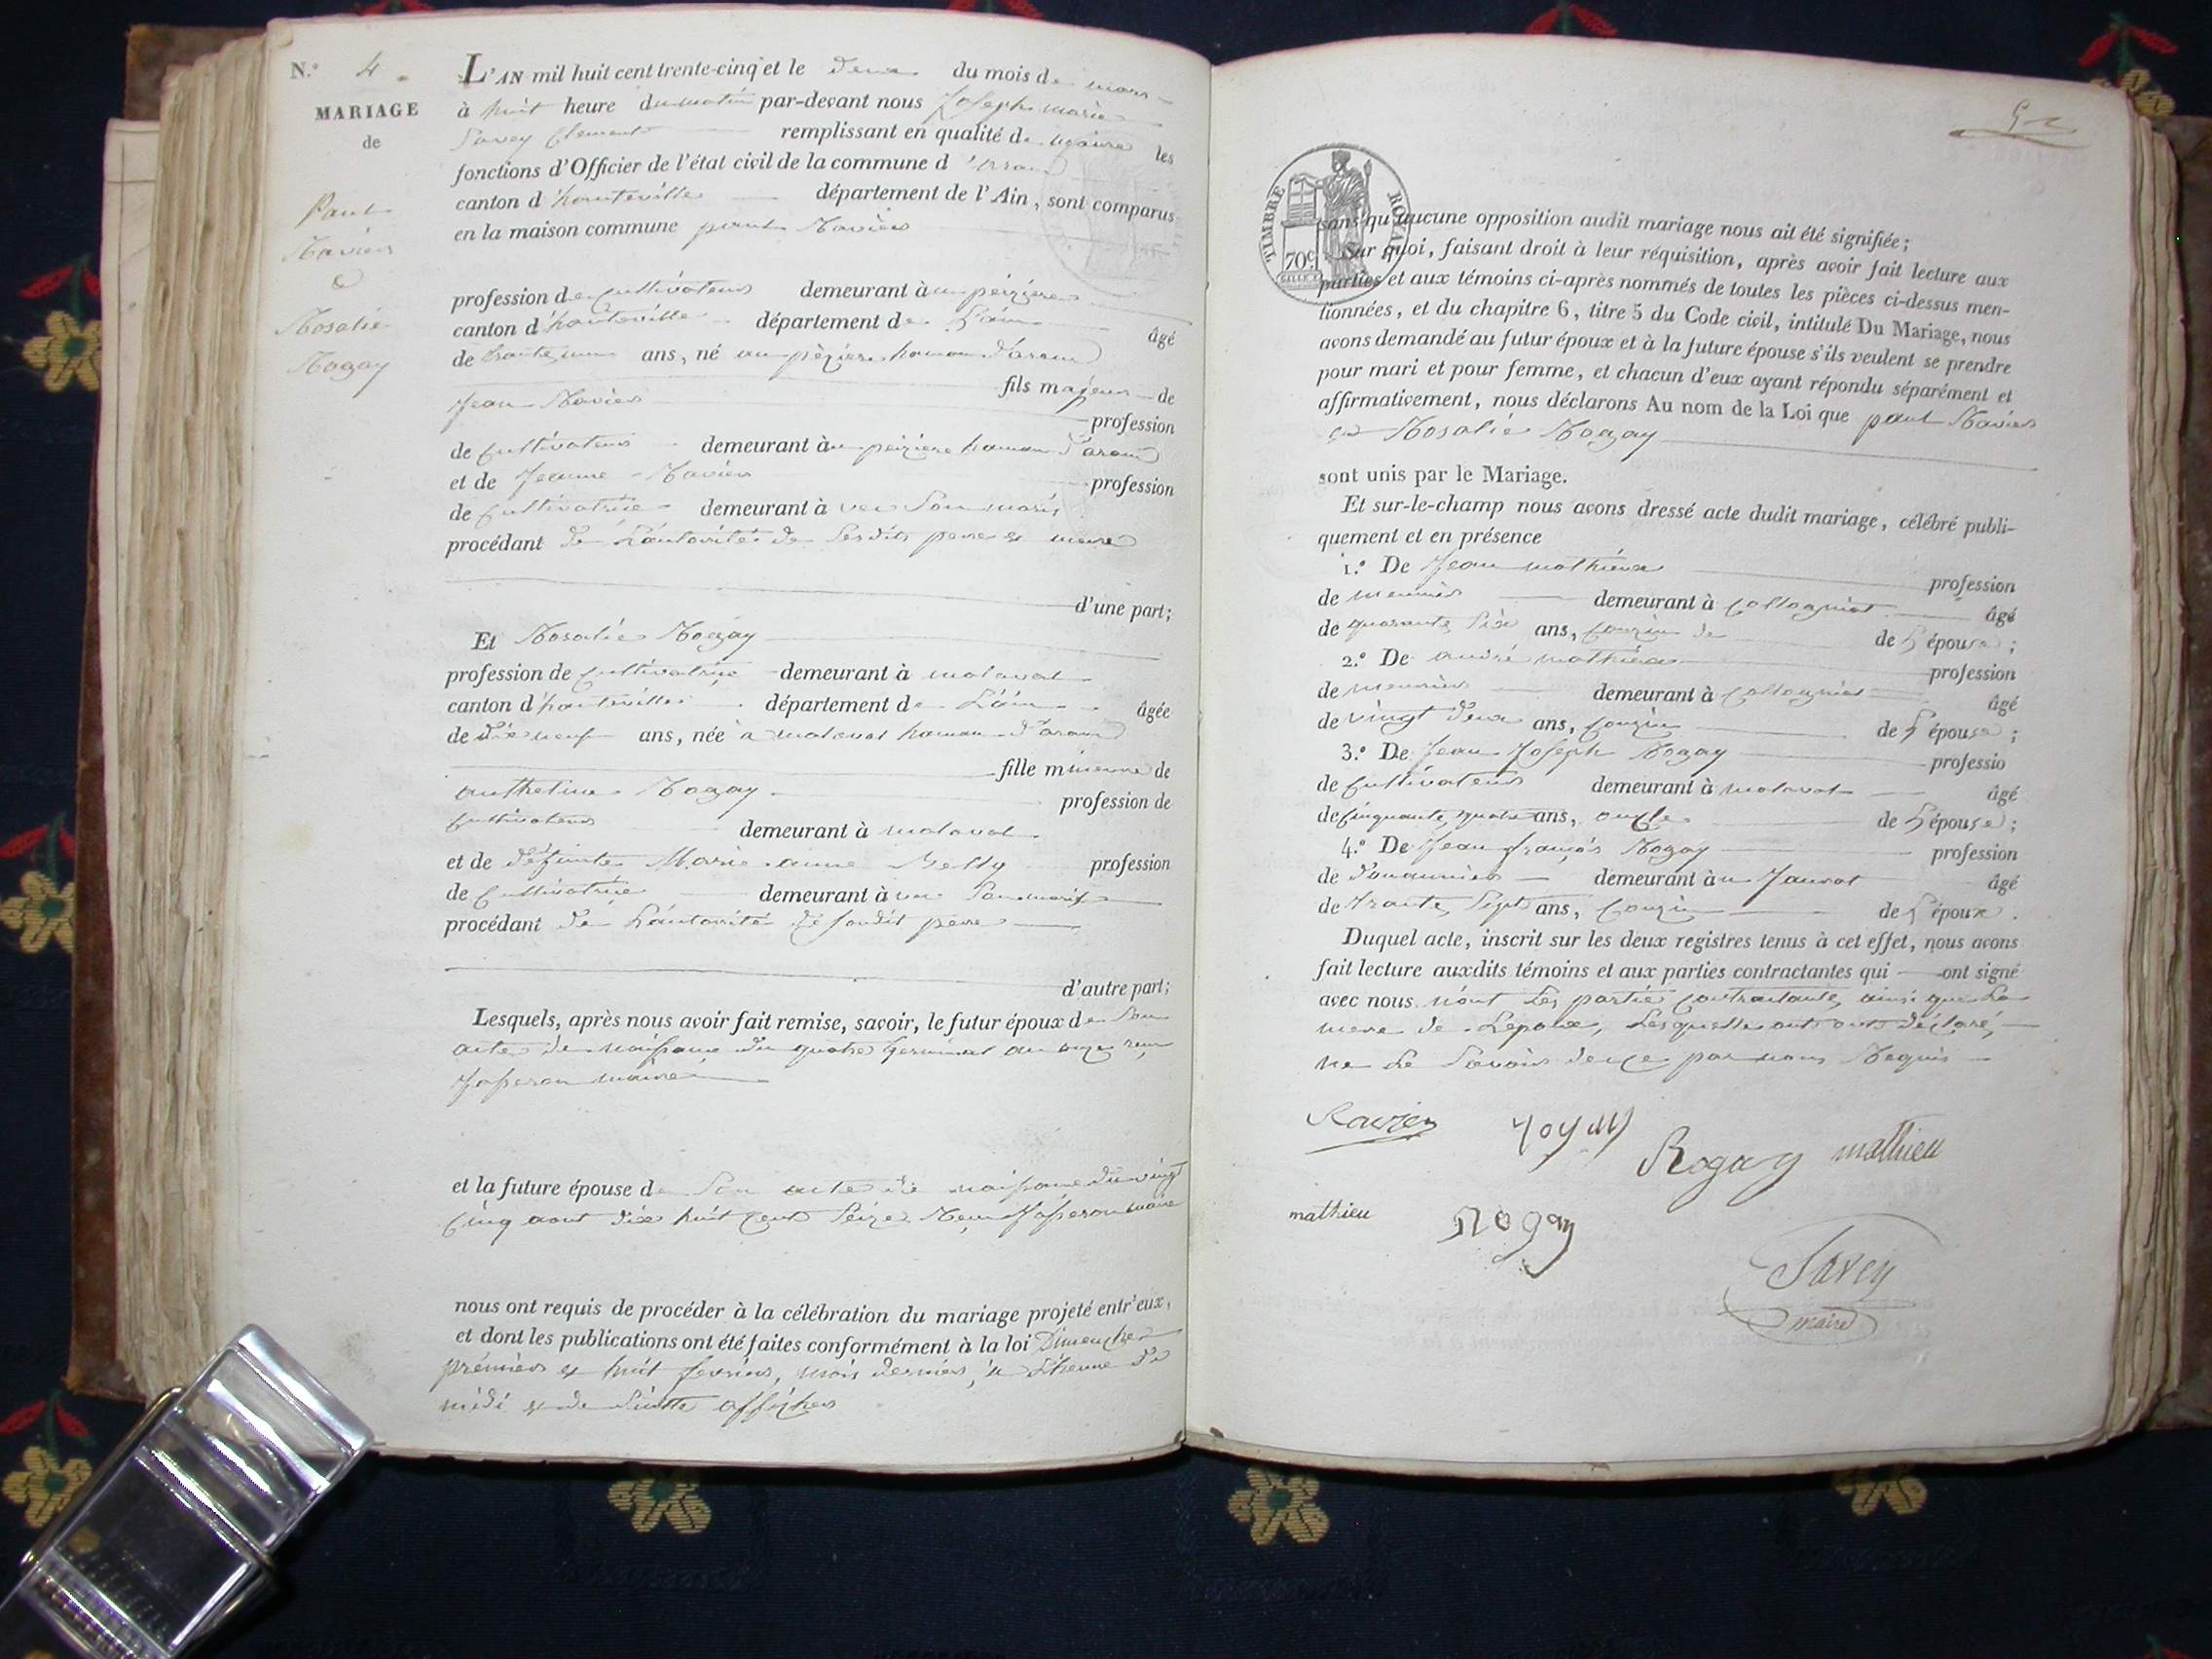 N.º 4
MARIAGE
de
Paul
Ravier
&
Rosalie
Rogay
L'AN mil huit cent trente-cinq et le deux du mois de mars
à huit heure du matin par-devant nous Joseph marie
Savey Clement remplissant en qualité de maire les
fonctions d'Officier de l'état civil de la commune d'aran
canton d'hauteville département de l'Ain, sont comparus
en la maison commune paul Ravier
profession de Cultivateur demeurant à
canton d'hauteville département de L'ain âgé
de ans, né au hameau d'aran
fils majeur de
Jean Ravier profession
de Cultivateur demeurant hameau d'aran
et de Jeanne Ravier profession
de Cultivatrice demeurant à vec Son maris
procédant de L'autorité de Sesdits pere et mere
d'une part;
Et Rosalie Rogay
profession de cultivatrice demeurant à malaval
canton d'hauteville département de L'ain âgée
de dix neuf ans, née à malaval hameau d'aran
fille mineure de
anthelme Rogay profession de
Cultivateur demeurant à malaval
et de défunte Marie anne profession
de Cultivatrice demeurant à vec Son marit
procédant de L'autorité de sondit pere
d'autre part;
Lesquels, après nous avoir fait remise, savoir, le futur époux de Son
acte de naissance du quatre germinal an onze
maire
et la future épouse de Son acte de naissance du vingt
Cinq aout dix huit Cent Seize maire
nous ont requis de procéder à la célébration du mariage projeté entr'eux,
et dont les publications ont été faites conformément à la loi Dimenche
prémier et huit fevrier, mois dernier, à L'heure de
midi et de Suitte affiches
TIMBRE ROYAL
70c
sans qu'aucune opposition audit mariage nous ait été signifiée;
Sur quoi, faisant droit à leur réquisition, après avoir fait lecture aux
parties et aux témoins ci-après nommés de toutes les pièces ci-dessus men-
tionnées, et du chapitre 6, titre 5 du Code civil, intitulé Du Mariage, nous
avons demandé au futur époux et à la future épouse s'ils veulent se prendre
pour mari et pour femme, et chacun d'eux ayant répondu séparément et
affirmativement, nous déclarons Au nom de la Loi que paul Ravier
et Rosalie Rogay
sont unis par le Mariage.
Et sur-le-champ nous avons dressé acte dudit mariage, célébré publi-
quement et en présence
1.º De Jean mathieu profession
de meunier demeurant à âgé
de quarante Six ans, Couzin de de L'épouse;
2.º De andré mathieu profession
de meunier demeurant à âgé
de vingt deux ans, Couzin de L'épouse;
3.º De Jean Joseph Rogay professio
de Cultivateur demeurant à malaval âgé
de Cinquante quatre ans, oncle de L'épouse;
4.º De Jean françois Rogay profession
de demeurant âgé
de trante Sept ans, Couzin de L'époux.
Duquel acte, inscrit sur les deux registres tenus à cet effet, nous avons
fait lecture auxdits témoins et aux parties contractantes qui ont signé
avec nous n'ont Les partie Contractante, ainsi que La
mere de L'epoux, Lesquelle ont déclaré
ne Le Savoir de Ce par nous Requis
Ravier Rogay mathieu
mathieu Rogay
Savey
maire